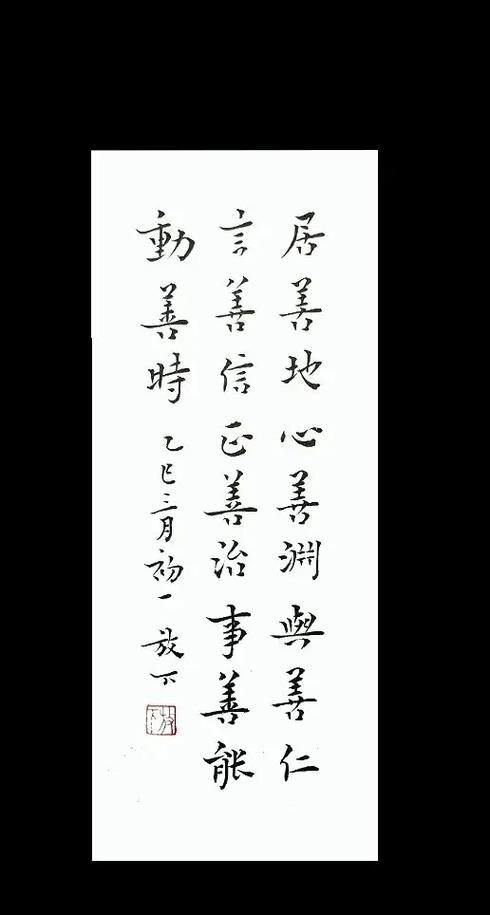 居善地心善淵與善仁
言善信正善治事善能
動善時 乙巳三月初一 放下
放下